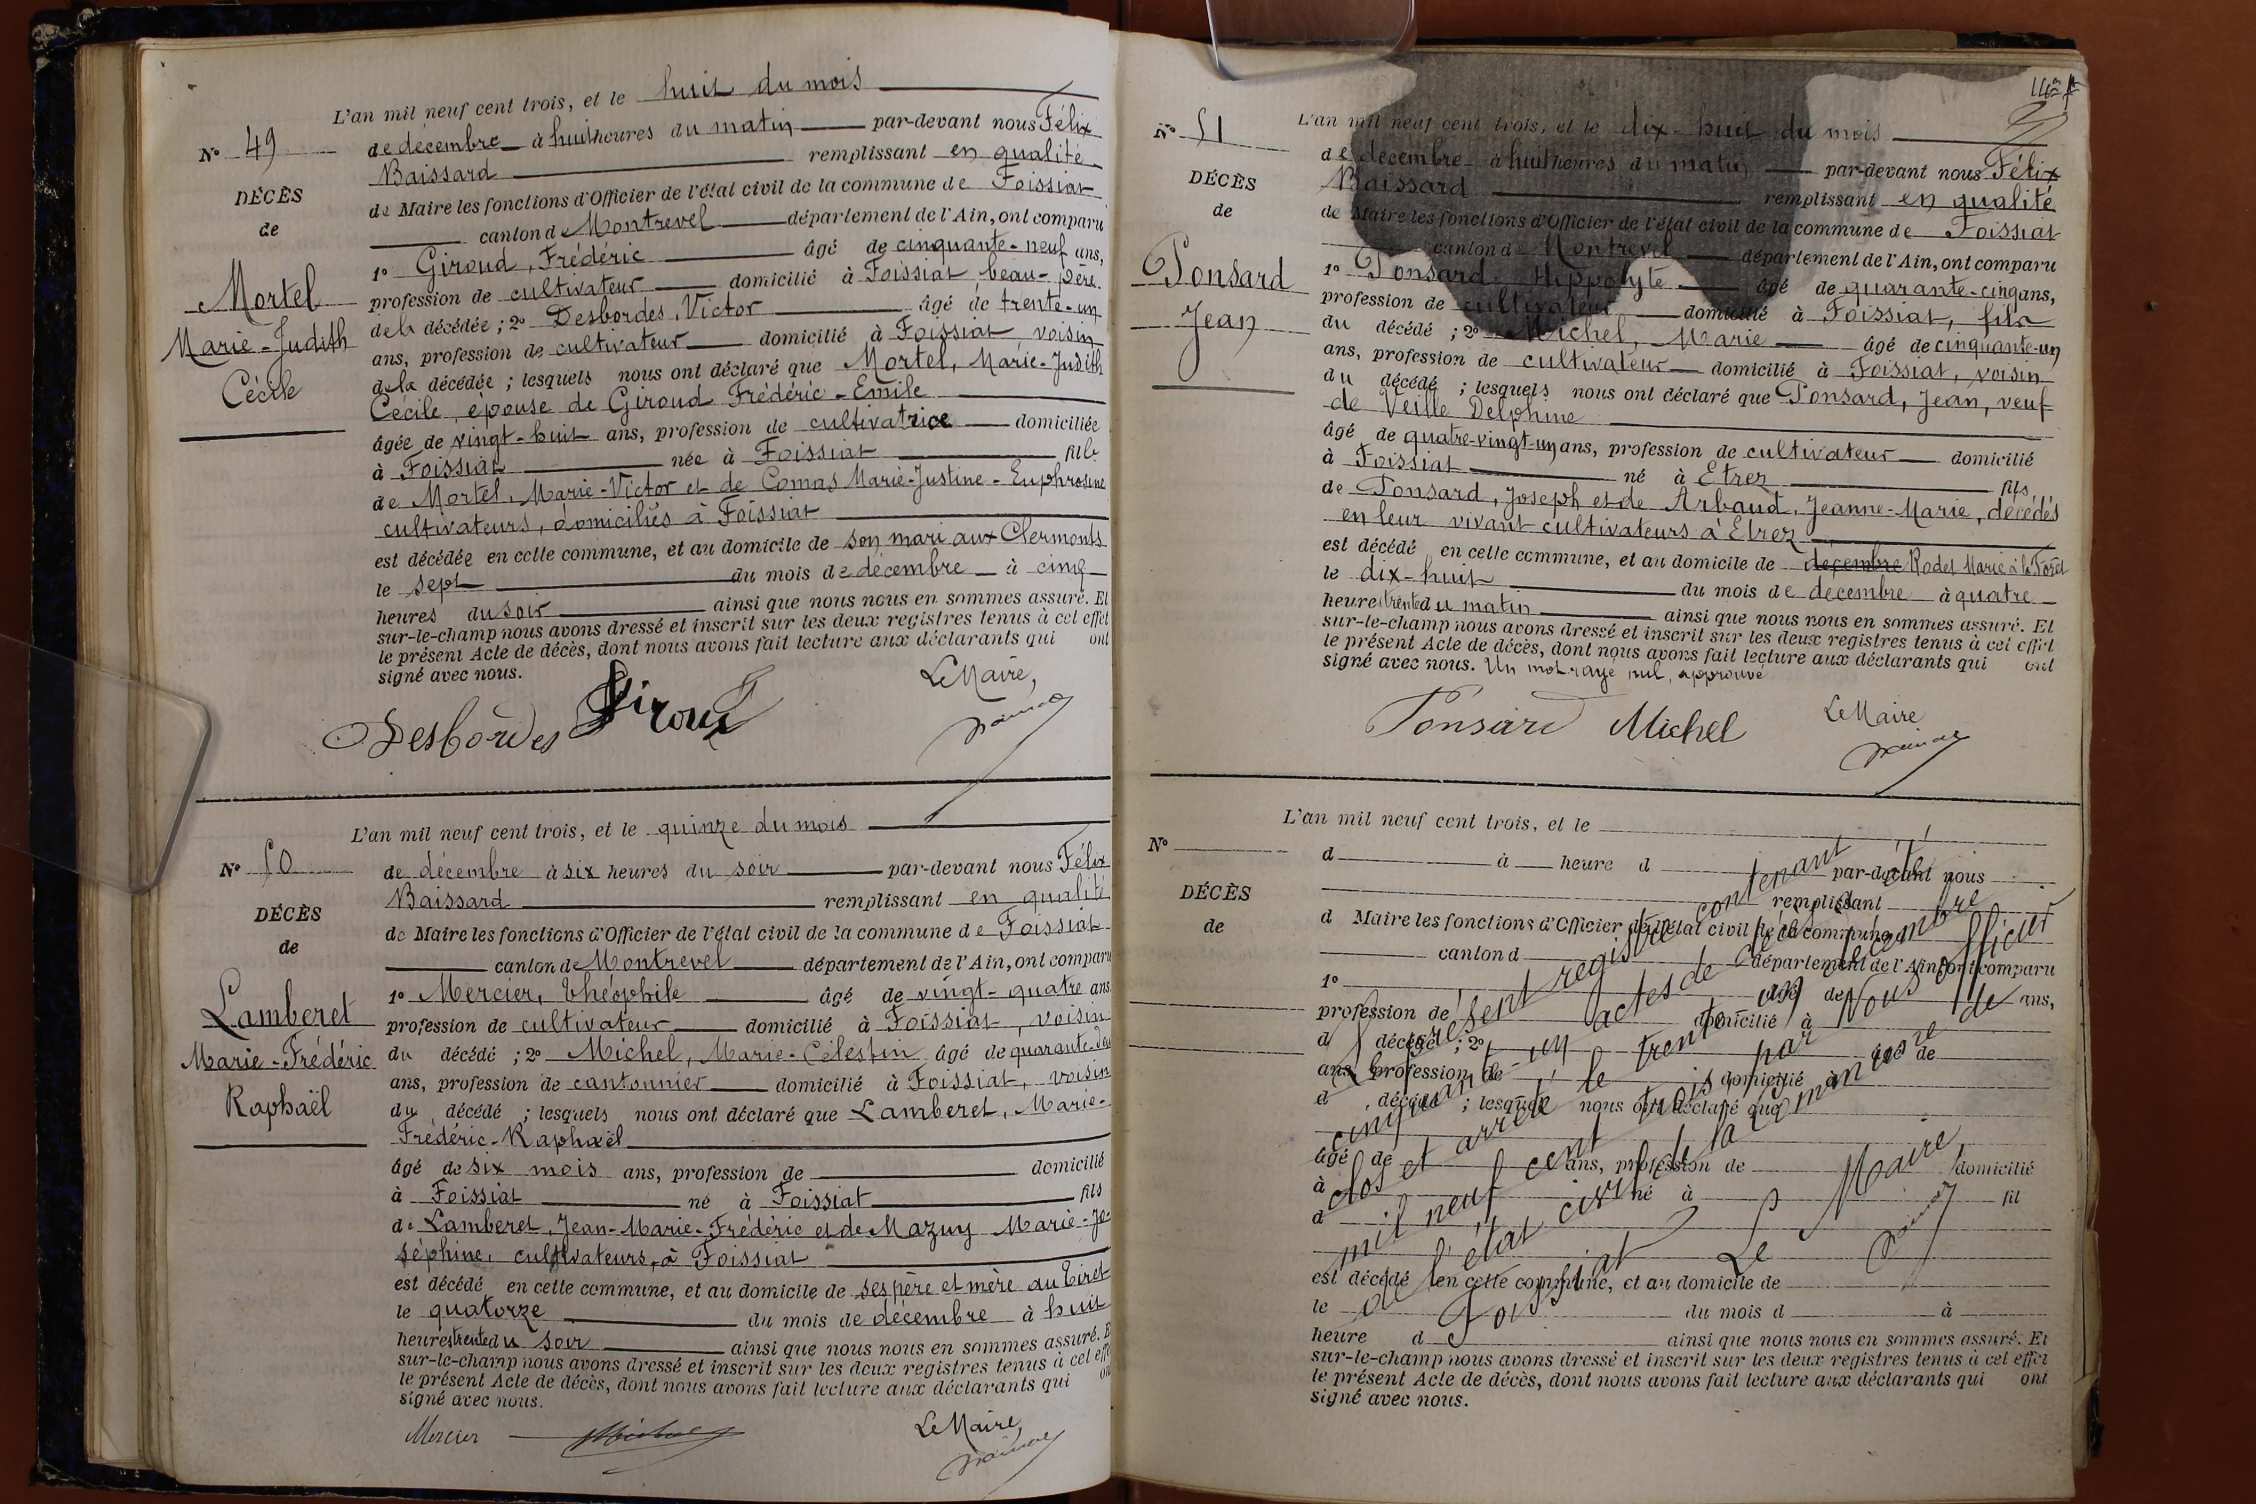 L'an mil neuf cent trois, et le huit du mois
N° 49
de décembre à huit heures du matin par-devant nous Félix
Baissard remplissant en qualité
DÉCÈS
de Maire les fonctions d'Officier de l'état civil de la commune de Foissiat
de
canton de Montrevel département de l'Ain, ont comparu
1° Giroud, Frédéric âgé de cinquante-neuf ans,
Mortel
profession de cultivateur domicilié à Foissiat beau-père
Marie-Judith
de la décédée ; 2° Desbordes, Victor âgé de trente-un
ans, profession de cultivateur domicilié à Foissiat voisin
Cécile
de la décédée ; lesquels nous ont déclaré que Mortel, Marie-Judith
Cécile, épouse de Giroud Frédéric-Emile
âgée de vingt-huit ans, profession de cultivatrice domiciliée
à Foissiat née à Foissiat fille
de Mortel, Marie-Victor et de Comas Marie-Justine-Euphrosine
cultivateurs, domiciliés à Foissiat
est décédée en cette commune, et au domicile de son mari aux Clermonts
le sept du mois de décembre à cinq
heures du soir ainsi que nous nous en sommes assuré. Et
sur-le-champ nous avons dressé et inscrit sur les deux registres tenus à cet effet
le présent Acte de décès, dont nous avons fait lecture aux déclarants qui ont
signé avec nous.
Le Maire,
Desbordes Giroud
L'an mil neuf cent trois, et le quinze du mois
N° 50
de décembre à six heures du soir par-devant nous Félix
Baissard remplissant en qualité
DÉCÈS
de Maire les fonctions d'Officier de l'état civil de la commune de Foissiat
de
canton de Montrevel département de l'Ain, ont comparu
1° Mercier, Théophile âgé de vingt-quatre ans
Lamberet
profession de cultivateur domicilié à Foissiat, voisin
Marie-Frédéric
du décédé ; 2° Michel, Marie-Célestin âgé de quarante-deux
ans, profession de cantonnier domicilié à Foissiat, voisin
Raphaël
du décédé ; lesquels nous ont déclaré que Lamberet, Marie-
Frédéric-Raphaël
âgé de six mois ans, profession de domicilié
à Foissiat né à Foissiat fils
de Lamberet, Jean-Marie-Frédéric et de Mazuy Marie-Jo-
séphine, cultivateurs, à Foissiat
est décédé en cette commune, et au domicile de ses père et mère au Tiret
le quatorze du mois de décembre à huit
heures trente du soir ainsi que nous nous en sommes assuré. E
sur-le-champ nous avons dressé et inscrit sur les deux registres tenus à cet effe
le présent Acte de décès, dont nous avons fait lecture aux déclarants qui on
signé avec nous.
Mercier
Le Maire
L'an mil neuf cent trois, et le dix-huit du mois
N° 51
de décembre à huit heures du matin par-devant nous Félix
Baissard remplissant en qualité
DÉCÈS
de Maire les fonctions d'Officier de l'état civil de la commune de Foissiat
de
canton de Montrevel département de l'Ain, ont comparu
1° Ponsard, Hippolyte âgé de quarante-cinq ans,
Ponsard
profession de cultivateur domicilié à Foissiat, fils
Jean
du décédé ; 2° Michel, Marie âgé de cinquante-un
ans, profession de cultivateur domicilié à Foissiat, voisin
du décédé ; lesquels nous ont déclaré que Ponsard, Jean, veuf
de Veille Delphine
âgé de quatre-vingt-un ans, profession de cultivateur domicilié
à Foissiat né à Etrez fils
de Ponsard, Joseph et de Arbaud, Jeanne-Marie, décédés
en leur vivant cultivateurs à Etrez
est décédé en cette commune, et au domicile de décembre Rodet Marie à la Forêt
le dix-huit du mois de décembre à quatre
heures trente du matin ainsi que nous nous en sommes assuré. Et
sur-le-champ nous avons dressé et inscrit sur les deux registres tenus à cet effet
le présent Acte de décès, dont nous avons fait lecture aux déclarants qui ont
signé avec nous. Un mot rayé nul, approuvé
Ponsard Michel
Le Maire
L'an mil neuf cent trois, et le
N°
d à heure d par-devant nous
remplissant
DÉCÈS
d Maire les fonctions d'Officier de l'état civil de la commune
de
canton d département de l'Ain, ont comparu
1° âgé de ans,
profession de domicilié à
d décédé ; 2° âgé de
ans, profession de domicilié à
d décédé ; lesquels nous ont déclaré que
âgé de ans, profession de domicilié
à né à fil
d
est décédé en cette commune, et au domicile de
le du mois d à
heure d ainsi que nous nous en sommes assuré. Et
sur-le-champ nous avons dressé et inscrit sur les deux registres tenus à cet effet
le présent Acte de décès, dont nous avons fait lecture aux déclarants qui ont
signé avec nous.
Le présent registre contenant
cinquante-un actes de décès a été
clos et arrêté le trente un décembre
mil neuf cent trois par Nous officier
de l'état civil de la commune de
Foissiat
Le Maire,